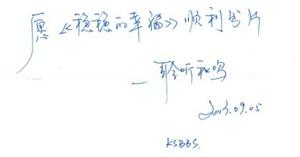 愿《稳稳的幸福》顺利出片
—聆听和鸣
2013.09.05
KSBBS.